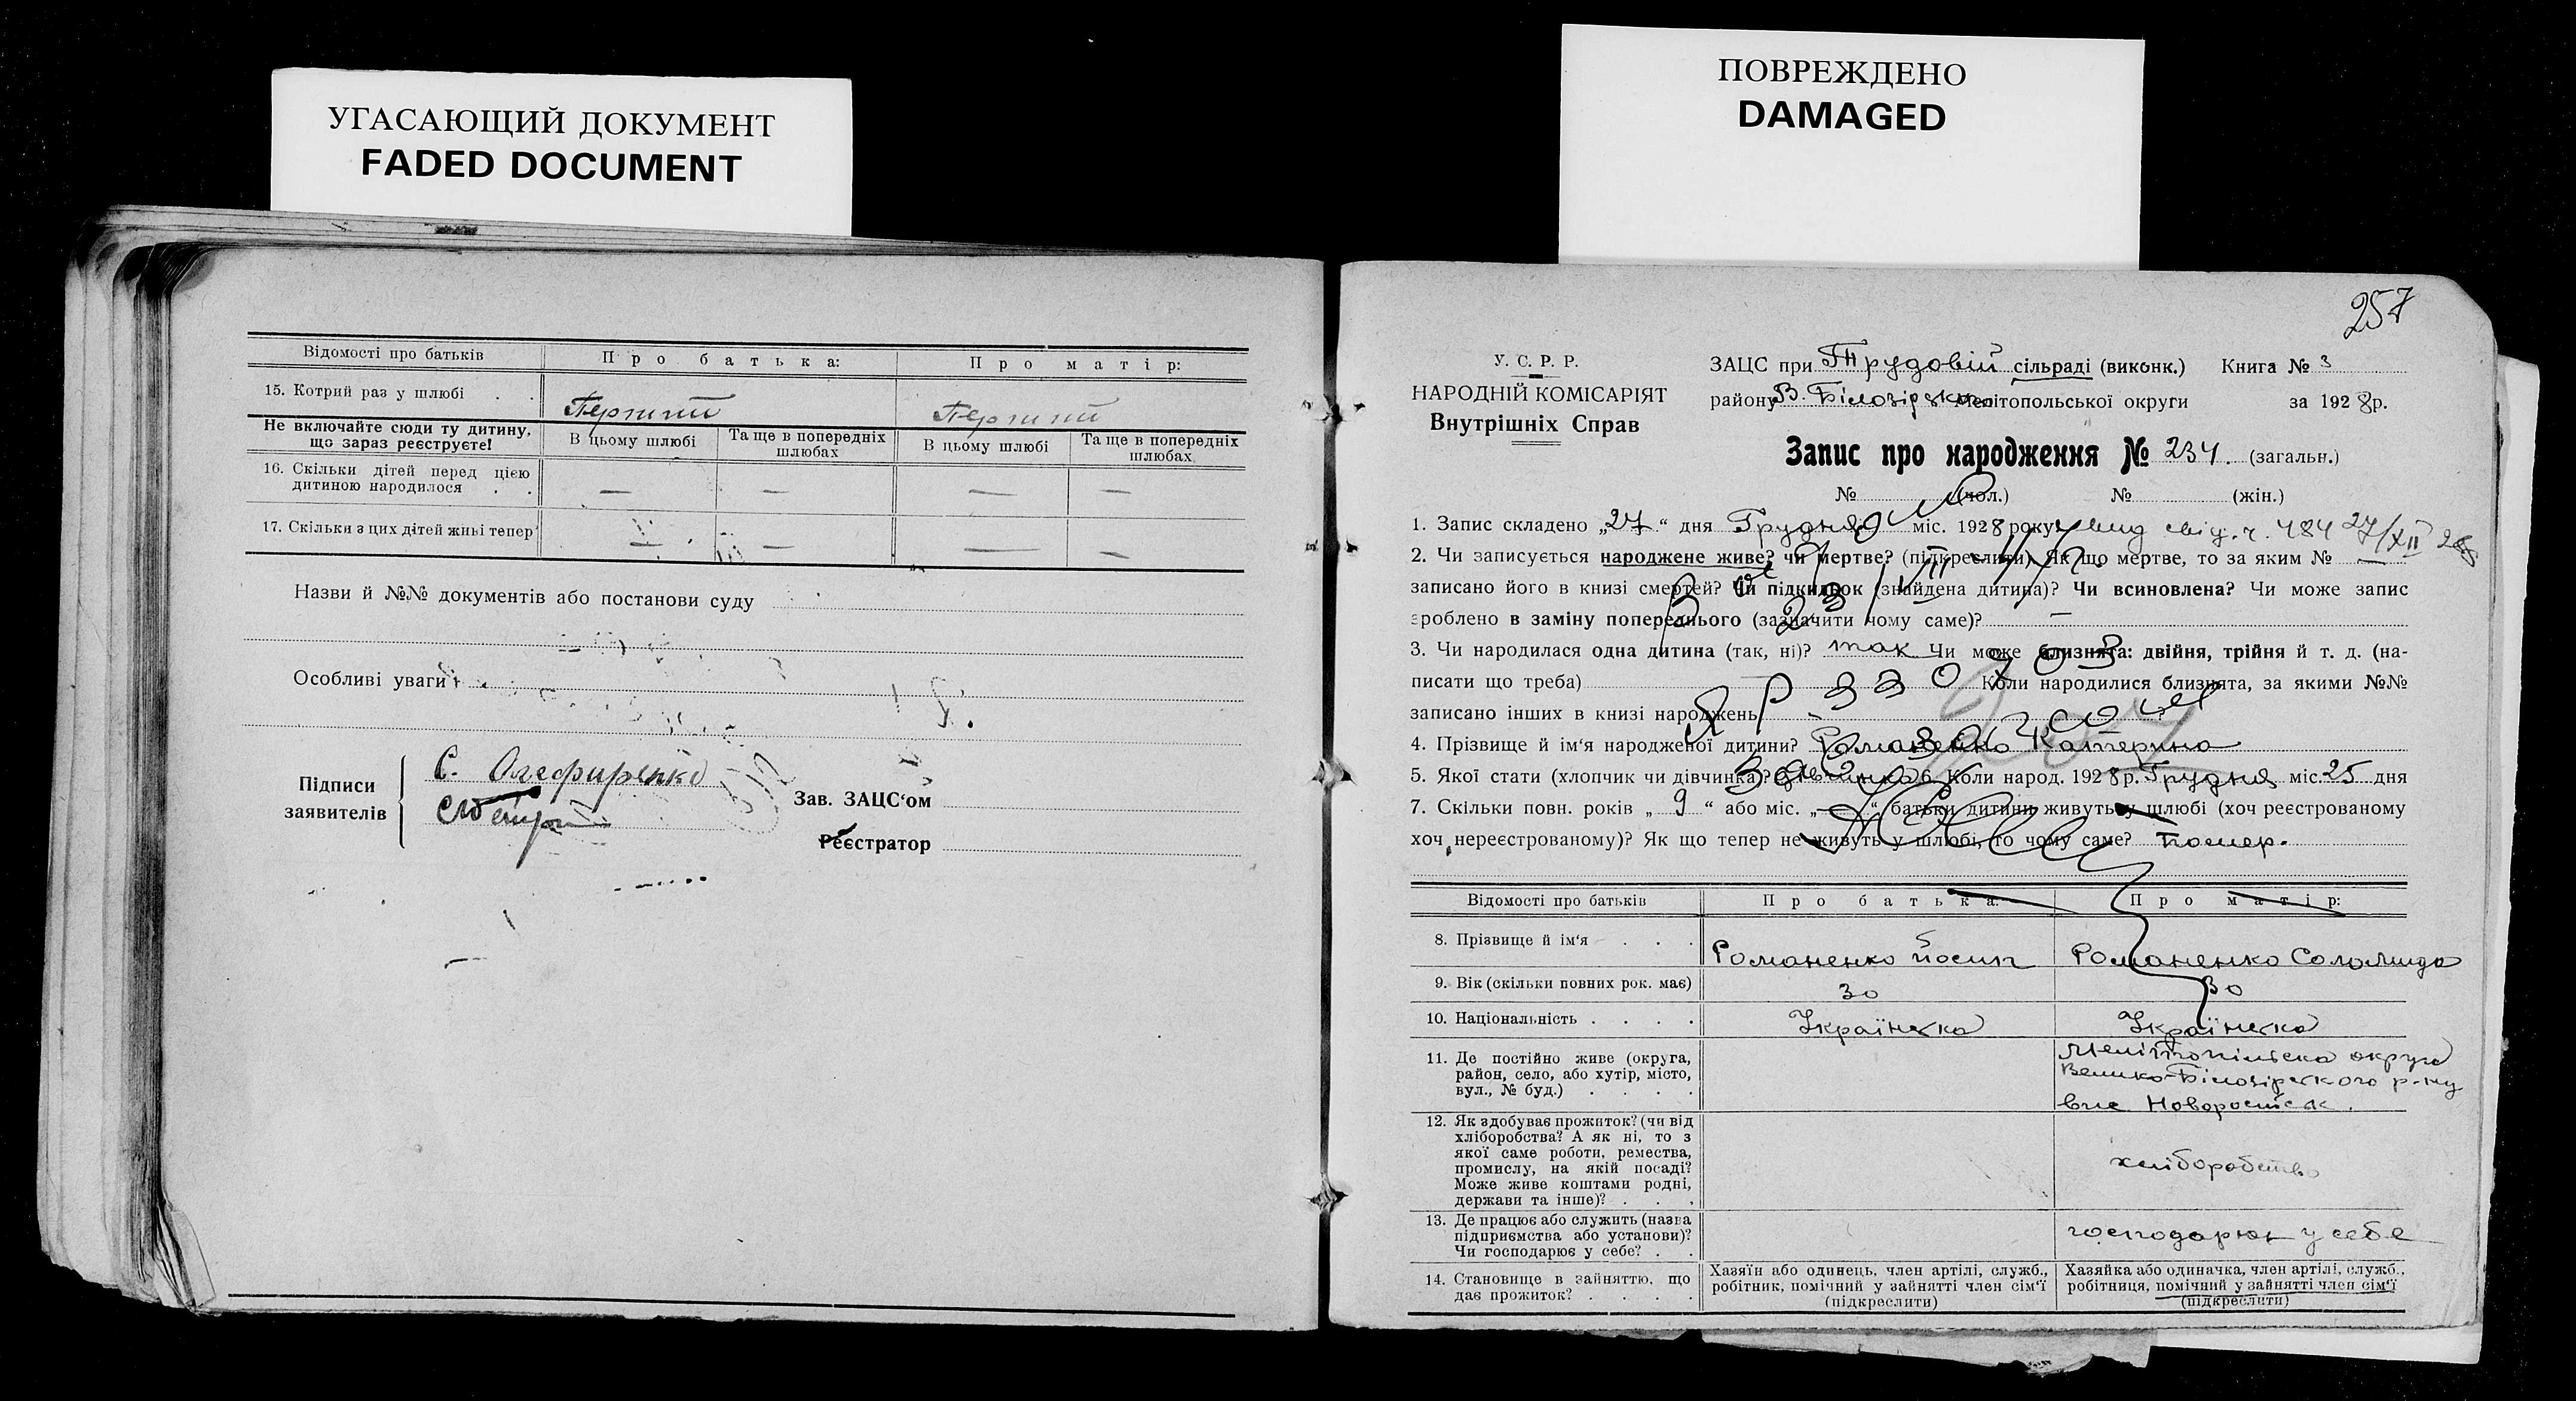 УГАСАЮЩИЙ ДОКУМЕНТ
FADED DOCUMENT
ПОВРЕЖДЕНО
DAMAGED
Відомості про батьків
Про батька:
Про матір:
15. Котрий раз у шлюбі . .
Перший
Перший
Не включайте сюди ту дитину,
що зараз реєструєте!
В цьому шлюбі
Та ще в попередніх
шлюбах
В цьому шлюбі
Та ще в попередніх
шлюбах
16. Скільки дітей перед цією
дитиною народилося . .
— — — —
17. Скільки з цих дітей живі тепер
— — — —
Назви й №№ документів або постанови суду
Особливі уваги
Підписи
заявителів
С.
Зав. ЗАЦС'ом
Реєстратор
257
У. С. Р. Р.
НАРОДНІЙ КОМІСАРІЯТ
Внутрішніх Справ
ЗАЦС при Трудовій сільраді (виконк.) Книга № 3
району В. Білозірська Мелітопольської округи за 1928 р.
Запис про народження № 234. (загальн.)
№ (чол.) № (жін.)
1. Запис складено „27“ дня Грудня міс. 1928 року вид свід. ч. 484 27/XII 28
2. Чи записується народжене живе? чи мертве? (підкреслити) Як що мертве, то за яким № —
записано його в книзі смертей? Чи підкидьок (знайдена дитина)? Чи всиновлена? Чи може запис
зроблено в заміну попереднього (зазначити чому саме)? —
3. Чи народилася одна дитина (так, ні)? так Чи може близнята: двійня, трійня й т. д. (на-
писати що треба) Коли народилися близнята, за якими №№
записано інших в книзі народжень
4. Прізвище й ім'я народженої дитини? Романенко Катерина
5. Якої стати (хлопчик чи дівчинка)? дівчинка 6. Коли народ. 1928 р. Грудня міс. 25 дня
7. Скільки повн. років „9“ або міс. „—“ батьки дитини живуть у шлюбі (хоч реєстрованому
хоч нереєстрованому)? Як що тепер не живуть у шлюбі, то чому саме? Помер.
Відомості про батьків
Про батька:
Про матір:
8. Прізвище й ім'я . . .
Романенко Йосип
Романенко Соломида
9. Вік (скільки повних рок. має)
30
30
10. Національність . . . .
Українська
Українська
11. Де постійно живе (округа,
район, село, або хутір, місто,
вул., № буд.) . . . .
Мелітопільська округа
Велико-Білозірського р-ну
вис Новоросійськ.
12. Як здобуває прожиток? (чи від
хліборобства? А як ні, то з
якої саме роботи, ремества,
промислу, на якій посаді?
Може живе коштами родні,
держави та інше)? . . .
хліборобство
13. Де працює або служить (назва
підприємства або установи)?
Чи господарює у себе? . .
господарює у себе
14. Становище в зайняттю, що
дає прожиток? . . . .
Хазяїн або одинець, член артілі, служб.,
робітник, помічний у зайнятті член сім'ї
(підкреслити)
Хазяйка або одиначка, член артілі, служб.,
робітниця, помічний у зайнятті член сім'ї
(підкреслити)